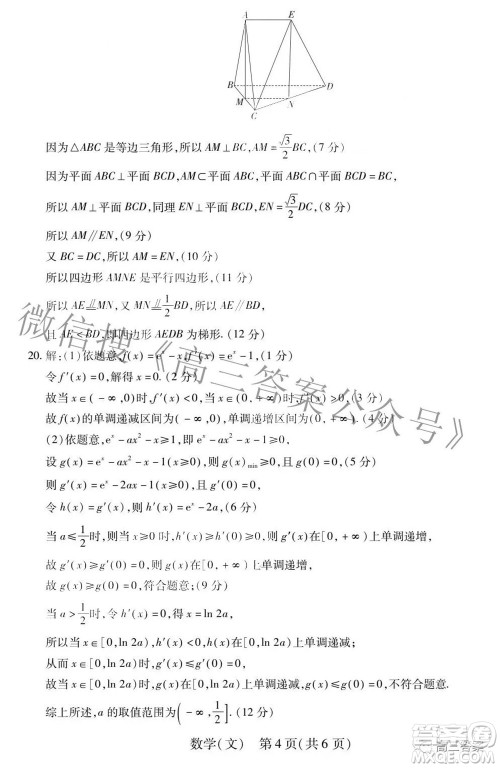 A
E
B
D
M
N
C
因为△ABC 是等边三角形,所以 AM⊥BC,AM=√3/2 BC,(7 分)
因为平面 ABC⊥平面 BCD,AM⊂平面 ABC,平面 ABC∩平面 BCD=BC,
所以 AM⊥平面 BCD,同理 EN⊥平面 BCD,EN=√3/2 DC,(8 分)
所以 AM∥EN,(9 分)
又 BC=DC,所以 AM=EN,(10 分)
所以四边形 AMNE 是平行四边形,(11 分)
所以 AE∥=MN,又 MN∥=1/2 BD,所以 AE∥BD,
且 AE<BD,即四边形 AEDB 为梯形.(12 分)
20. 解:(1)依题意,f(x)=e^x-x,f′(x)=e^x-1,(1 分)
令 f′(x)=0,解得 x=0.(2 分)
故当 x∈(-∞,0)时,f′(x)<0,当 x∈(0,+∞)时,f′(x)>0,(3 分)
故 f(x)的单调递减区间为(-∞,0),单调递增区间为(0,+∞).(4 分)
(2)依题意,e^x-ax²-x≥1,即 e^x-ax²-x-1≥0,
设 g(x)=e^x-ax²-x-1(x≥0),则 g(x)min≥0,且 g(0)=0,(5 分)
则 g′(x)=e^x-2ax-1(x≥0),且 g′(0)=0,
令 h(x)=g′(x),则 h′(x)=e^x-2a,(6 分)
当 a≤1/2时,则当 x≥0 时,h′(x)≥0,所以 g′(x)在[0,+∞)上单调递增,
故 g′(x)≥g′(0)=0,所以 g(x)在[0,+∞)上单调递增,
故 g(x)≥g(0)=0,符合题意;(9 分)
当 a>1/2时,令 h′(x)=0,得 x=ln 2a,
所以当 x∈[0,ln 2a)时,h′(x)<0,h(x)在[0,ln 2a)上单调递减;
从而 x∈[0,ln 2a)时,g′(x)≤g′(0)=0,
故当 x∈[0,ln 2a)时,g(x)单调递减,g(x)≤g(0)=0,不符合题意.
综上所述,a 的取值范围为(-∞,1/2].(12 分)
数学(文) 第 4 页(共 6 页)
微信搜《高三答案公众号》
高三答案
MXQE.COM